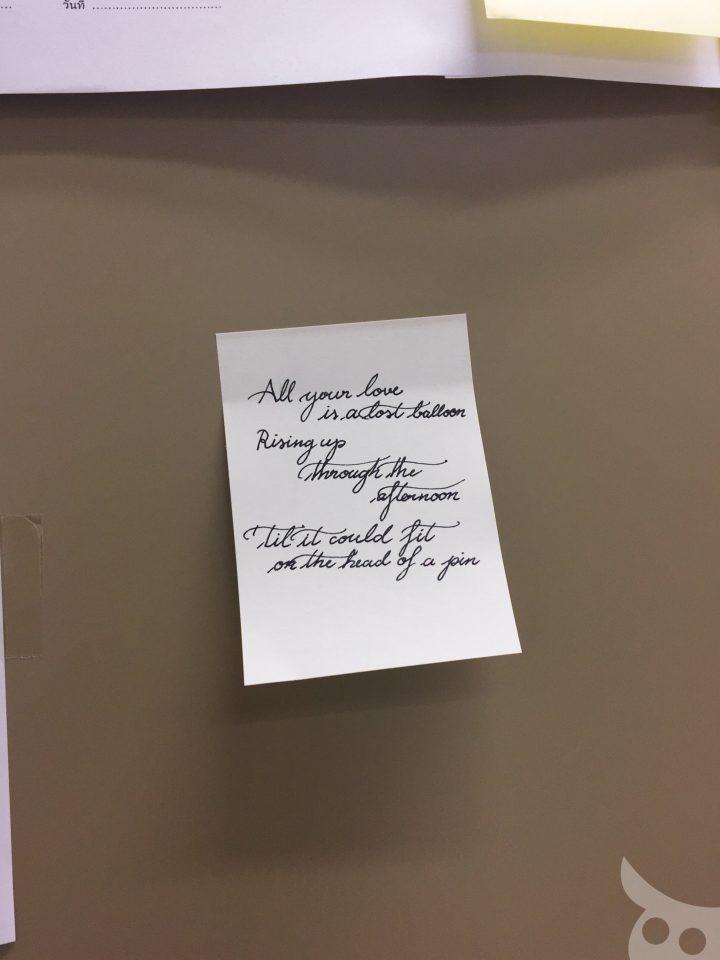 วันที่ ........................................
All your love
is a lost balloon
Rising up
through the
afternoon
'til it could fit
on the head of a pin